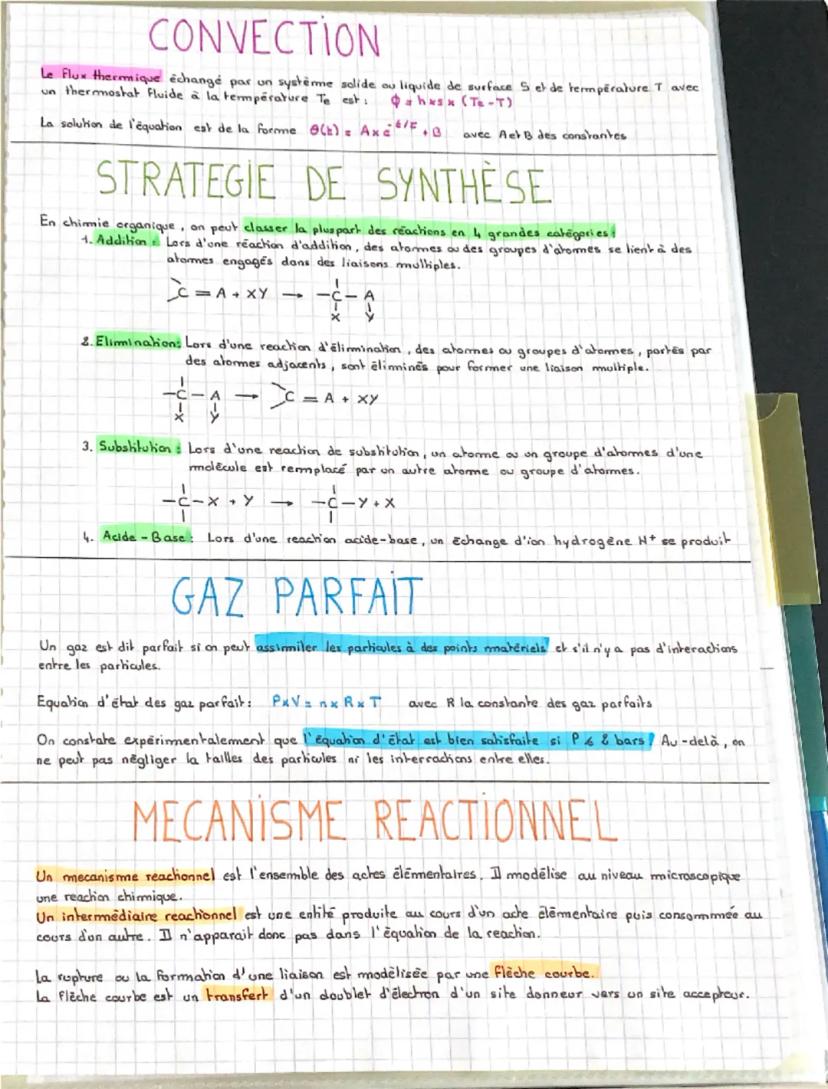 CONVECTION
Le flux thermique échangé par un système solide ou liquide de surface S et de température T avec
un thermostat fluide à la température Te est : ϕ = h×s× (Te-T)
La solution de l'équation est de la forme θ(t) = A×e^-t/τ + B avec A et B des constantes
STRATEGIE DE SYNTHÈSE
En chimie organique, on peut classer la pluspart des réactions en 4 grandes catégories :
1. Addition : Lors d'une réaction d'addition, des atomes ou des groupes d'atomes se lient à des
atomes engagés dans des liaisons multiples.
>C = A + XY → -C - A
X Y
2. Elimination: Lors d'une reaction d'élimination, des atomes ou groupes d'atomes, portés par
des atomes adjacents, sont éliminés pour former une liaison multiple.
-C - A → >C = A + XY
X Y
3. Substitution : Lors d'une reaction de substitution, un atome ou un groupe d'atomes d'une
molécule est remplacé par un autre atome ou groupe d'atomes.
-C-X + Y → -C-Y + X
4. Acide - Base : Lors d'une reaction acide-base, un échange d'ion hydrogène H+ se produit
GAZ PARFAIT
Un gaz est dit parfait si on peut assimiler les particules à des points matériels et s'il n'y a pas d'interactions
entre les particules.
Equation d'état des gaz parfait : P×V = n×R×T avec R la constante des gaz parfaits
On constate expérimentalement que l'équation d'état est bien satisfaite si P ≤ 2 bars ! Au-delà, on
ne peut pas négliger la tailles des particules ni les interractions entre elles.
MECANISME REACTIONNEL
Un mecanisme reactionnel est l'ensemble des actes élémentaires. Il modélise au niveau microscopique
une reaction chimique.
Un intermédiaire reactionnel est une entité produite au cours d'un acte élémentaire puis consommée au
cours d'un autre. Il n'apparait donc pas dans l'équation de la reaction.
La rupture ou la formation d'une liaison est modélisée par une flèche courbe.
La flèche courbe est un transfert d'un doublet d'électron d'un site donneur vers un site accepteur.